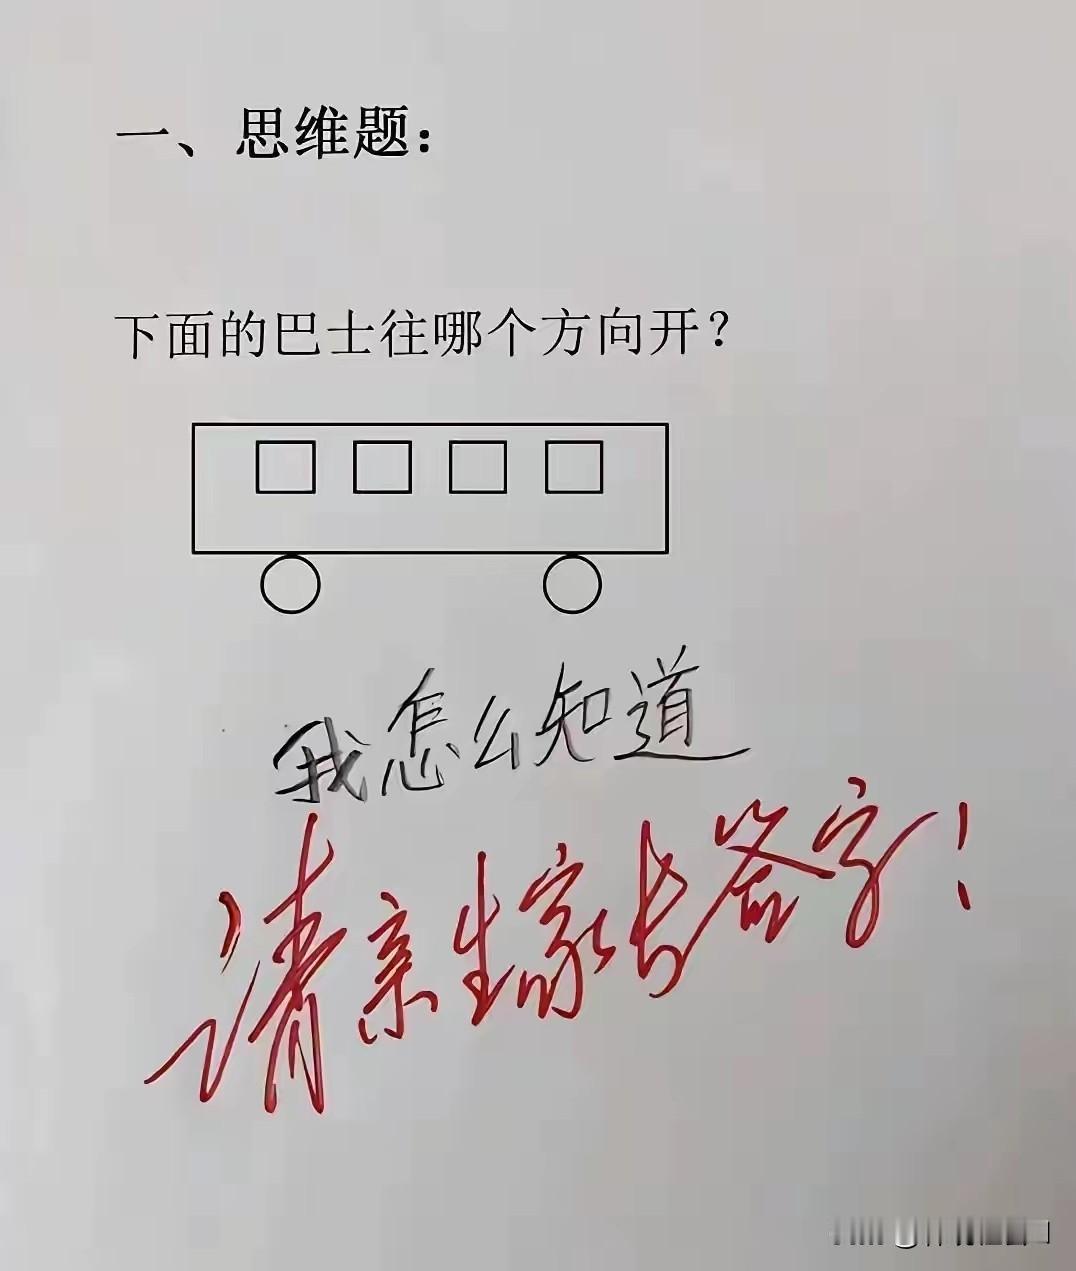 一、思维题：
下面的巴士往哪个方向开？
我怎么知道
请亲生家长签字！